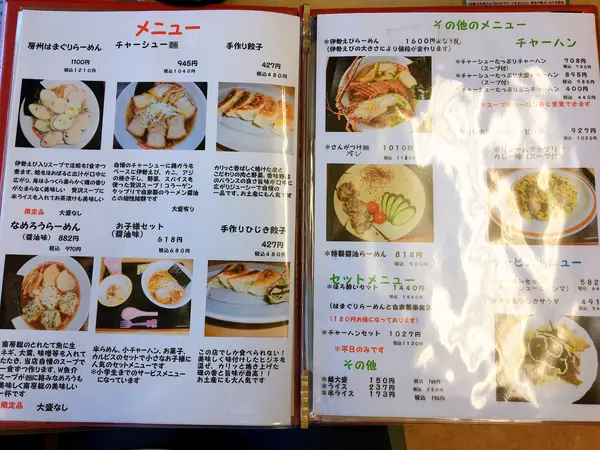 メニュー
房州はまぐりらーめん
1100円
税込1210円
チャーシュー麺
945円
税込1040円
手作り餃子
427円
税込480円
伊勢えび入りスープで活蛤を1食ずつ
煮ます。蛤をほおばると出汁が口中に
広がり、身はふっくら柔らかく磯の香りが
たまらなく美味しい 贅沢スープ!
半ライスを入れてお茶漬けも美味しい
限定品 大盛なし
自慢のチャーシューに鶏ガラを
ベースに伊勢えび、カニ、アジ
の焼き干し、野菜、スパイスを
使った贅沢スープ!コラーゲン
タップリで自家製のラーメン醤油
との相性抜群です
大盛有り
カリっと香ばしく焼けた皮と
こだわりの肉と野菜、香味野菜
のバランスの良さ旨味が口中に
広がりジューシーで自慢の
一品です。お土産にも大人気です
なめろうらーめん
(醤油味) 882円
税込 970円
お子様セット
(醤油味)
618円
税込 680円
手作りひじき餃子
427円
税込480円
南房総のとれたて魚に生
ネギ、大葉、味噌等を入れて
たたき、当店自慢のスープで
一食ずつ作ります。W魚介
スープが麺に絡みなめろうも
美味しく
一杯です
限定品 大盛なし
半らーめん、小チャーハン、お菓子、
カルピスのセットで小さなお子様に
人気のセットメニューです
*小学生までのサービスメニュー
になっています
この店でしか食べられない!
美味しく味付けしたヒジキを
混ぜ、カリっと焼き上げた
磯の香と旨味が最高!!
お土産にも大人気です
その他のメニュー
*伊勢えびらーめん 1600円より
(伊勢えびの大きさにより値段が変わります)
チャーハン
*チャーシューたっぷりチャーハン 708円
(スープ付) 税込 780円
*チャーシューたっぷり大盛チャーハン 895円
(スープ付) 税込 985円
400円
税込 440円
*スープ付らーめんに変更できます
927円
税込1020円
カレー味(スープ付)
*さんがつけ麺 1010円
冷し
*特製醤油らーめん 818円
税込 900円
セットメニュー
1440円
(はまぐりらーめんと自家製
(180円お得になっております)
*チャーハンセット 1027円
税込 1130円
*平日のみです
その他
*麺大盛 150円
*ライス 237円 税込 260円
*半ライス 173円 税込 190円
582